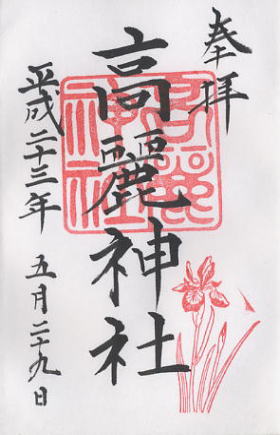 奉拝
高麗神社
平成二十三年 五月二十九日